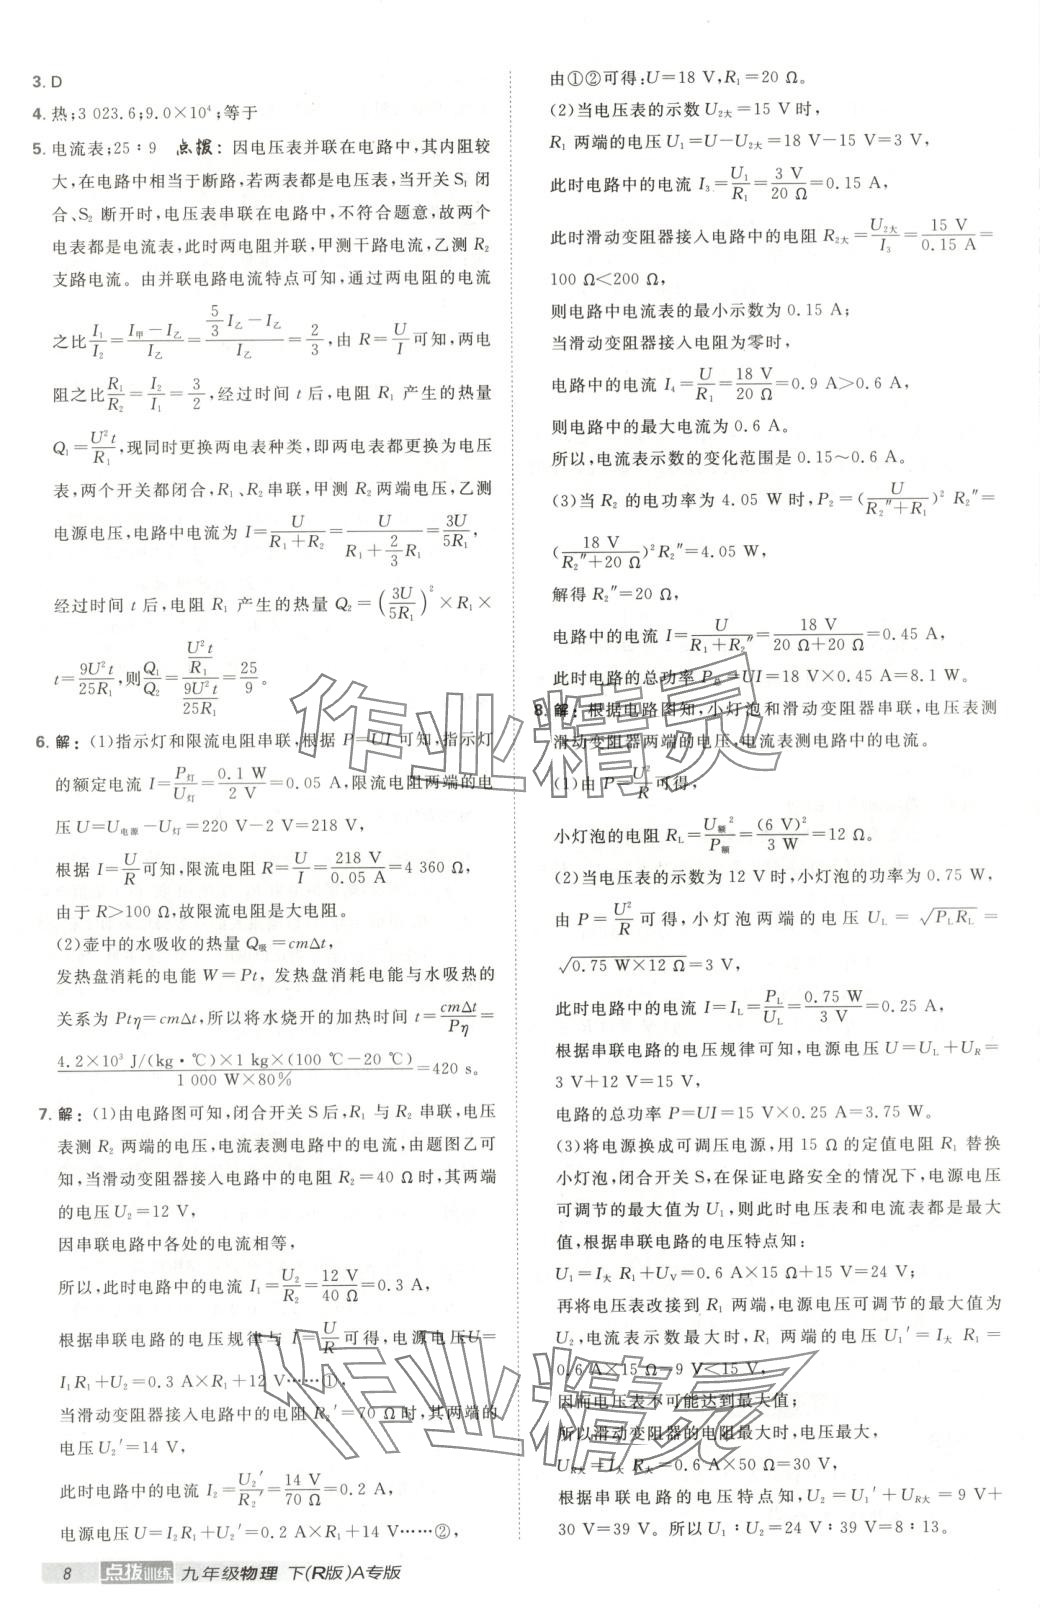 3. D
4. 热;3 023.6;9.0×10⁴;等于
5. 电流表;25∶9 点拨:因电压表并联在电路中,其内阻较
大,在电路中相当于断路,若两表都是电压表,当开关 S₁ 闭
合、S₂ 断开时,电压表串联在电路中,不符合题意,故两个
电表都是电流表,此时两电阻并联,甲测干路电流,乙测 R₂
支路电流。由并联电路电流特点可知,通过两电阻的电流
之比 I₁/I₂=(I甲−I乙)/I乙=(5/3 I乙−I乙)/I乙=2/3,由 R=U/I 可知,两电
阻之比 R₁/R₂=I₂/I₁=3/2,经过时间 t 后,电阻 R₁ 产生的热量
Q₁=U²t/R₁,现同时更换两电表种类,即两电表都更换为电压
表,两个开关都闭合,R₁、R₂串联,甲测 R₂ 两端电压,乙测
电源电压,电路中电流为 I=U/(R₁+R₂)=U/(R₁+2/3 R₁)=3U/5R₁,
经过时间 t 后,电阻 R₁ 产生的热量 Q₂=(3U/5R₁)²×R₁×
t=9U²t/25R₁,则 Q₁/Q₂=(U²t/R₁)/(9U²t/25R₁)=25/9。
6. 解:(1)指示灯和限流电阻串联,根据 P=UI 可知,指示灯
的额定电流 I=P灯/U灯=0.1 W/2 V=0.05 A,限流电阻两端的电
压 U=U电源−U灯=220 V−2 V=218 V,
根据 I=U/R 可知,限流电阻 R=U/I=218 V/0.05 A=4 360 Ω,
由于 R>100 Ω,故限流电阻是大电阻。
(2)壶中的水吸收的热量 Q吸=cmΔt,
发热盘消耗的电能 W=Pt,发热盘消耗电能与水吸热的
关系为 Ptη=cmΔt,所以将水烧开的加热时间 t=cmΔt/Pη=
4.2×10³ J/(kg·℃)×1 kg×(100 ℃−20 ℃)/(1 000 W×80%)=420 s。
7. 解:(1)由电路图可知,闭合开关 S 后,R₁ 与 R₂ 串联,电压
表测 R₂ 两端的电压,电流表测电路中的电流,由题图乙可
知,当滑动变阻器接入电路中的电阻 R₂=40 Ω时,其两端
的电压 U₂=12 V,
因串联电路中各处的电流相等,
所以,此时电路中的电流 I₁=U₂/R₂=12 V/40 Ω=0.3 A,
根据串联电路的电压规律与 I=U/R 可得,电源电压 U=
I₁R₁+U₂=0.3 A×R₁+12 V……①,
当滑动变阻器接入电路中的电阻 R₂′=70 Ω时,其两端的
电压 U₂′=14 V,
此时电路中的电流 I₂=U₂′/R₂′=14 V/70 Ω=0.2 A,
电源电压 U=I₂R₁+U₂′=0.2 A×R₁+14 V……②,
由①②可得:U=18 V,R₁=20 Ω。
(2)当电压表的示数 U₂大=15 V时,
R₁ 两端的电压 U₁=U−U₂大=18 V−15 V=3 V,
此时电路中的电流 I₃=U₁/R₁=3 V/20 Ω=0.15 A,
此时滑动变阻器接入电路中的电阻 R₂大=U₂大/I₃=15 V/0.15 A=
100 Ω<200 Ω,
则电路中电流表的最小示数为 0.15 A;
当滑动变阻器接入电阻为零时,
电路中的电流 I₄=U/R₁=18 V/20 Ω=0.9 A>0.6 A,
则电路中的最大电流为 0.6 A。
所以,电流表示数的变化范围是 0.15~0.6 A。
(3)当 R₂ 的电功率为 4.05 W时,P₂=(U/(R₂″+R₁))² R₂″=
(18 V/(R₂″+20 Ω))²R₂″=4.05 W,
解得 R₂″=20 Ω,
电路中的电流 I=U/(R₁+R₂″)=18 V/(20 Ω+20 Ω)=0.45 A,
此时电路的总功率 P总=UI=18 V×0.45 A=8.1 W。
8. 解:根据电路图知,小灯泡和滑动变阻器串联,电压表测
滑动变阻器两端的电压,电流表测电路中的电流。
(1)由 P=U²/R 可得,
小灯泡的电阻 R_L=U额²/P额=(6 V)²/3 W=12 Ω。
(2)当电压表的示数为 12 V时,小灯泡的功率为 0.75 W,
由 P=U²/R 可得,小灯泡两端的电压 U_L=√(P_LR_L)=
√(0.75 W×12 Ω)=3 V,
此时电路中的电流 I=I_L=P_L/U_L=0.75 W/3 V=0.25 A,
根据串联电路的电压规律可知,电源电压 U=U_L+U_R=
3 V+12 V=15 V,
电路的总功率 P=UI=15 V×0.25 A=3.75 W。
(3)将电源换成可调压电源,用 15 Ω的定值电阻 R₁ 替换
小灯泡,闭合开关 S,在保证电路安全的情况下,电源电压
可调节的最大值为 U₁,则此时电压表和电流表都是最大
值,根据串联电路的电压特点知:
U₁=I大 R₁+U_V=0.6 A×15 Ω+15 V=24 V;
再将电压表改接到 R₁ 两端,电源电压可调节的最大值为
U₂,电流表示数最大时,R₁ 两端的电压 U₁′=I大 R₁=
0.6 A×15 Ω=9 V<15 V,
因而电压表不可能达到最大值;
所以滑动变阻器的电阻最大时,电压最大,
U_R大=I大 R大=0.6 A×50 Ω=30 V,
根据串联电路的电压特点知,U₂=U₁′+U_R大=9 V+
30 V=39 V。所以 U₁∶U₂=24 V∶39 V=8∶13。
作业精灵
作业精灵
8 点拨训练 九年级物理 下(R版)A专版